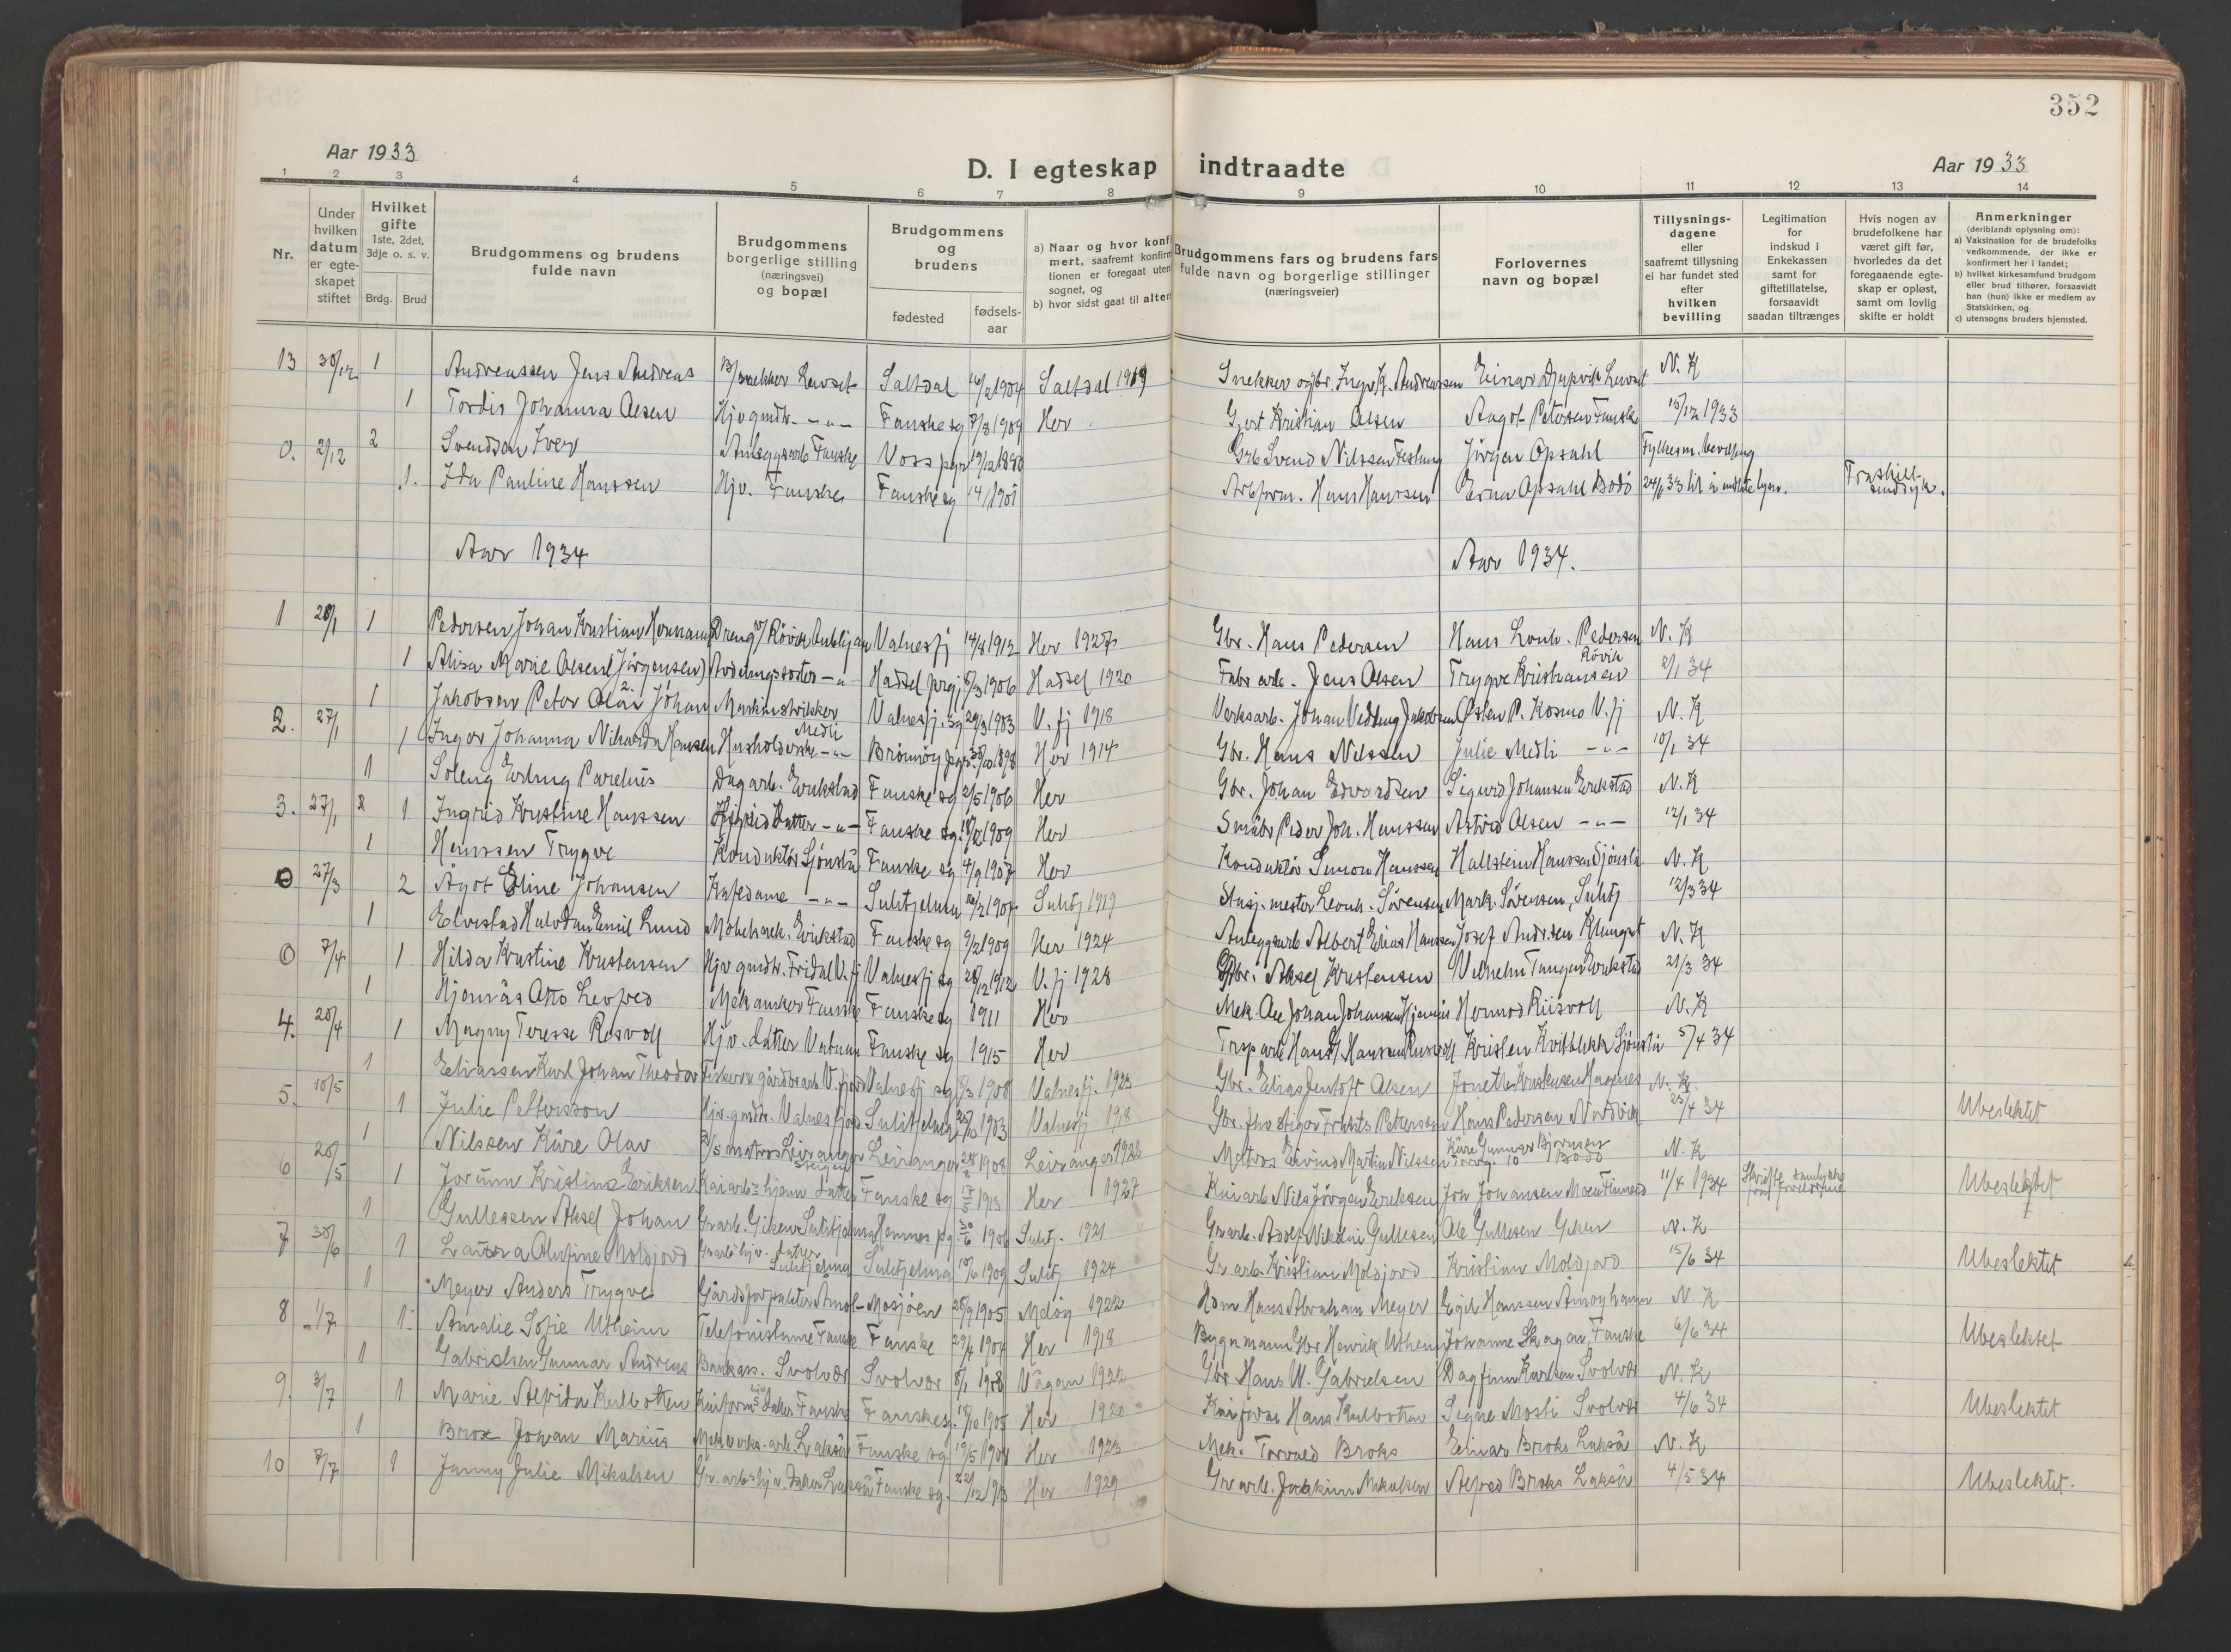 352
Aar 1933
D. I egteskap indtraadte
Aar 1933
1 2 3 4 5 6 7 8 9 10 11 12 13 14
Nr.
Under hvilken datum er egte-skapet stiftet
Hvilket gifte 1ste, 2det, 3dje o. s. v.
Brdg. Brud
Brudgommens og brudens fulde navn
Brudgommens borgerlige stilling (næringsvei) og bopæl
Brudgommens og brudens
fødested
fødsels-aar
a) Naar og hvor konfi
mert, saafremt konfirm
tionen er foregaat uten
sognet, og
b) hvor sidst gaat til alter
Brudgommens fars og brudens fars fulde navn og borgerlige stillinger (næringsveier)
Forlovernes navn og bopæl
Tillysnings-dagene eller saafremt tillysning ei har fundet sted efter hvilken bevilling
Legitimation for indskud i Enkekassen samt for giftetillatelse, forsaavidt saadan tiltrænges
Hvis nogen av brudefolkene har været gift før, hvorledes da det foregaaende egte-skap er opløst, samt om lovlig skifte er holdt
Anmerkninger
(deriblandt oplysning om):
a) Vaksination for de brudefolks vedkommende, der ikke er konfirmert her i landet;
b) hvilket kirkesamfund brudgom eller brud tilhører, forsaavidt han (hun) ikke er medlem av Statskirken, og
c) utensogns bruders hjemsted.
13 30/12 1 Andreassen Jens Andreas Saltdal 16/2 1904 Saltdal 1919 Snekker og gbr. Ingv. K. Andreassen Einar Djupvik N. K
1 Tordis Johanna Olsen Hjv gmdtr. -"- Fauske sg 7/8 1909 Her Gjert Kristian Olsen Aagot Petersen Fauske 15/12 1933
0. 2/12 2 Svendsen Iver Anleggsarb Fauske Voss pgj 19/12 1880 Grb Svend Nilssen Jörgen Opsahl Fylkesm. bevilling
1. Ida Pauline Hanssen Hjv. Fauske Fauske sg 14/1 1901 Arbform. Hans Hanssen Erna Opsahl Bodö 24/11 33 til å undlate lysn. Fraskilt
Aar 1934
Aar 1934.
1 20/1 1 Pedersen Johan Kristian Hermann Dreng v/ Rövik Valnesfj 14/8 1912 Her 1927 Gbr. Hans Pedersen Hans Lonh. Pedersen N. K
1 Alisa Marie Olsen (Jörgensen) Avdelingssöster -"- Hadsel prgj 5/3 1906 Hadsel 1920 Fabr arb. Jens Olsen Trygve Kristiansen Rövik 2/1 34
2. 27/1 1 Jakobsen Peter Olai Johan Maskinstrikker Valnesfj. sg 29/3 1903 V. fj 1918 Verksarb. Johan Vedding Jakobsen Östen P. Kosmo V. fj N. K
1 Inger Johanna Nikarda Hansen Husholderske -"- Medli Brönnöy pgj 30/10 1898 Her 1914 Gbr. Hans Nilssen Julie Medli -"- 10/1 34
3. 27/1 1 Soleng Erling Parelius Dagarb. Erikstad Fauske sg 2/5 1906 Her Gbr. Johan Edvardsen Sigurd Johansen Erikstad N. K
1 Ingrid Kristine Hanssen datter -"- Fauske sg. 1909 Her Småbr Peder Joh. Hanssen Astrid Olsen -"- 12/1 34
0 27/3 1 Hanssen Trygve Konduktör Sjönstå Fauske sg 4/9 1907 Her Konduktör Simon Hanssen Hallstein Hanssen Sjönstå N. K
2 Agot Eline Johansen Kafedame -"- Sulitjelma 1907 Sulitj 1919 Stasj. mester Leonh. Sörensen Mark. Sörensen, Sulitj 12/3 34
0 7/4 1 Elvestad Halvdan Emil Lund Möbelsnek. Erikstad Fauske sg 9/2 1909 Her 1924 Anleggsarb Albert Elias Hanssen Josef Andr.sen Klungset N. K
1 Hilda Kristine Kristensen Hjv gmdtr. Fridal V. fj Valnesfj sg 28/12 1912 V. fj 1928 Gbr. Aksel Kristensen Vilhelm Tangen Erikstad 21/3 34
4. 20/4 1 Hjemås Otto Leofred Mekaniker Fauske Fauske sg 1911 Her Mek. Ole Johan Johansen Hjemås Hermod Riisvoll N. K
1 Magny Terese Risvoll Hjv. datter Fauske sg 1915 Her Kristen Kvitblikk Sjönstå 5/4 34
5. 10/5 1 Eliassen Karl Johan Theodor Fisker og gårdsarb V. fjord Valnesfj sg 5/3 1908 Valnesfj. 1923 Gbr. Elias Jentoft Olsen Jonette Kristensen Hagenes N. K.
1 Julie Pettersson Hjv. gmdtr. Valnesfjord Sulitjelma 1903 Valnesfj 1918 Hans Pedersen Nordvik 25/4 34 Ubeslektet
6 20/5 1 Nilssen Kåre Olav matros Leiranger Steigen Leiranger 1908 Leiranger 1922 Matros Eivind Martin Nilssen Kåre Gunnar Björnsen Torvg. 10 Bodö N. K
1 Jorunn Kristine Eriksen Kaiarb s hjem datter Fauske sg 17/5 1913 Her 1927 Kaiarb Nils Jörgen Eriksen Joh Johansen Moen Finneid 11/4 1934 Skriftl. samtykke fra foreldrene Ubeslektet
7 30/6 1 Gullesen Aksel Johan Gr arb. Giken Sulitjelma Hemnes pg. 30/6 1906 Sulitj. 1921 Gr arb. Adolf Nikolai Gullesen Ole Gullesen Giken N. K
1 Laura Olufine Moldjord Gr arb hjv. datter Sulitjelma Sulitjelma 10/6 1909 Sulitj 1924 Gr arb. Kristian Moldjord Kristian Moldjord 15/6 34 Ubeslektet
8 1/7 1 Meyer Anders Trygve Gårdsforpakter Amöy Mosjöen 28/9 1905 Melöy 1922 Hdm Hans Abraham Meyer Egil Hanssen Amöyhamn N. K
1. Amalie Sofie Utheim Telefonistinne Fauske Fauske 29/4 1904 Her 1918 Bygnmann Gbr Henrik Utheim Johanne Skagan Fauske 6/6 34 Ubeslektet
9. 3/7 1 Gabrielsen Gunnar Andreas Bankass. Svolvær Svolvær 8/1 1908 Vågan 1922 Gbr Hans U. Gabrielsen Dagfinn Karlsen Svolvær N. K
1 Marie Alvida Kulbotten Kaiform s datter Fauske Fauske sg. 18/10 1905 Her 1920 Kaiform Hans Kulbotten Signe Mosti Svolvær 4/6 34 Ubeslektet
10 7/7 1 Brox Johan Marius Mek verks. arb. Lakså Fauske sg. 19/5 1908 Her 1923 Mek. Torvald Broks Einar Broks Lakså N. K
1 Jenny Julie Mikalsen Gr. arb s hjv. datter Lakså Fauske sg. 22/12 1913 Her 1929 Gr arb. Joakim Mikalsen Alfred Broks Lakså 4/5 34 Ubeslektet.